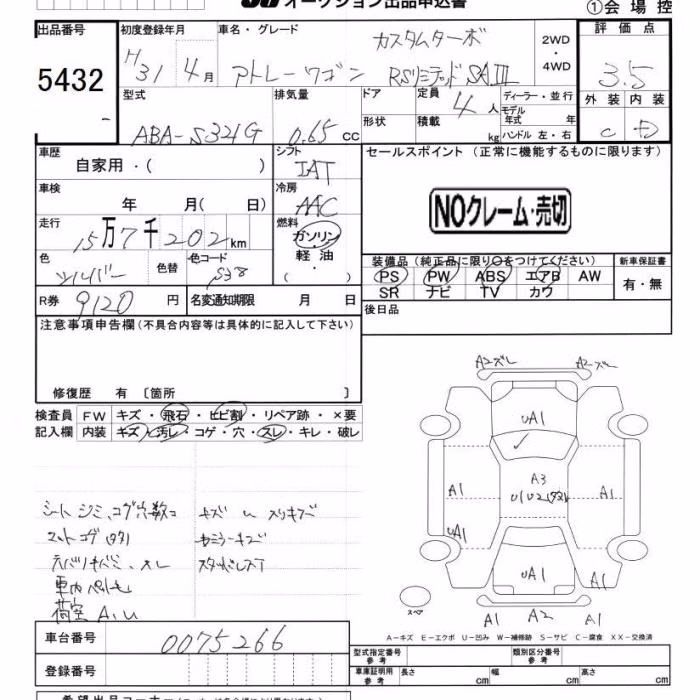 オークション出品申込書
①会場控
出品番号 初度登録年月 車名・グレード カスタムターボ 2WD・4WD 評価点
5432 H31 4月 アトレーワゴン RSリミテッド SAIII 3.5
型式 排気量 ドア 定員 4人 ディーラー・並行 外装 内装
ABA-S321G 0.65 cc 形状 積載 kg モデル年式 年 ハンドル 左・右 C D
車歴 自家用・( ) シフト IAT セールスポイント (正常に機能するものに限ります)
車検 年 月( 日) 冷房 AAC
NOクレーム・売切
走行 15万7千202km 燃料 ガソリン・軽油・( )
色 シルバー 色替 色コード S38
装備品(純正品に限り○をつけてください) 新車保証書
PS PW ABS エアB AW 有・無
SR ナビ TV カワ
R券 9120円 名変通知期限 月 日
後日品
注意事項申告欄(不具合内容等は具体的に記入して下さい)
修復歴 有 〔箇所 〕
検査員 FW キズ・飛石・ヒビ割・リペア跡・×要
記入欄 内装 キズ・汚レ・コゲ・穴・スレ・キレ・破レ
A2ズレ A2ズレ
UA1
A3
A1 A1
UA1
UA1 A1
スペア
A1 A2 A1
シートシミ、コゲ穴数コ キズ U スリキズ
マットコゲ
スタッドレス
車内ペット毛
荷室 A、U
A-キズ E-エクボ U-凹み W-補修跡 S-サビ C-腐食 XX-交換済
車台番号 0075266
型式指定番号 参考 類別区分番号 参考
登録番号
車庫証明用 参考 長さ cm 幅 cm 高さ cm